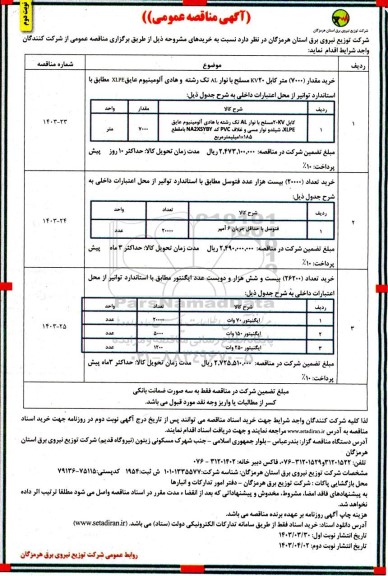 نوبت دوم
((آگهی مناقصه عمومی))
شرکت توزیع نیروی برق استان هرمزگان
شرکت توزیع نیروی برق استان هرمزگان در نظر دارد نسبت به خریدهای مشروحه ذیل از طریق برگزاری مناقصه عمومی از شرکت کنندگان
واجد شرایط اقدام نماید:
ردیف
شماره مناقصه
خرید مقدار (۷۰۰۰) متر کابل KV۲۰ مسلح با نوار AL تک رشته و هادی آلومینیوم عایق XLPE مطابق با
استاندارد توانیر از محل اعتبارات داخلی به شرح جدول ذیل:
ردیف شرح کالا مقدار واحد
۱ کابل ۲۰KV مسلح با نوار AL تک رشته با هادی آلومینیوم عایق XLPE، شیلدو نوار مسی و غلاف PVC کد NA2XSYBY بامقطع ۱*۱۸۵ میلیمترمربع ۷۰۰۰ متر
مبلغ تضمین شرکت در مناقصه: ۲,۴۷۳,۱۰۰,۰۰۰ ریال مدت زمان تحویل کالا: حداکثر ۱۰ روز پیش
پرداخت: ۱۰٪
۱
۱۴۰۳-۲۳
خرید تعداد (۲۰۰۰۰) بیست هزار عدد فتوسل مطابق با استاندارد توانیر از محل اعتبارات داخلی به
شرح جدول ذیل:
ردیف شرح کالا تعداد واحد
۱ فتوسل با حداقل جریان ۶ آمپر ۲۰۰۰۰ عدد
مبلغ تضمین شرکت در مناقصه: ۲,۴۹۰,۰۰۰,۰۰۰ ریال مدت زمان تحویل کالا: حداکثر ۳ ماه پیش
پرداخت: ۱۰٪
۲
۱۴۰۳-۲۴
خرید تعداد (۲۶۲۰۰) بیست و شش هزار و دویست عدد ایگنتور مطابق با استاندارد توانیر از محل
اعتبارات داخلی به شرح جدول ذیل:
ردیف شرح کالا تعداد واحد
۱ ایگنیتور ۷۰ وات ۲۰۰۰۰ عدد
۲ ایگنیتور ۱۵۰ وات ۵۰۰۰ عدد
۳ ایگنیتور ۲۵۰ وات ۱۲۰۰ عدد
مبلغ تضمین شرکت در مناقصه: ۲,۷۲۵,۵۱۰,۰۰۰ ریال مدت زمان تحویل کالا: حداکثر ۳ ماه پیش
پرداخت: ۱۰٪
۳
۱۴۰۳-۲۵
مبلغ تضمین شرکت در مناقصه فقط به سه صورت ضمانت بانکی
کسر از مطالبات یا واریز وجه نقد مورد قبول می باشد.
لذا کلیه شرکت کنندگان واجد شرایط جهت خرید اسناد مناقصه می توانند پس از تاریخ درج آگهی نوبت دوم در روزنامه جهت خرید اسناد
مناقصه به آدرس www.setadiran.ir مراجعه نمایند و جهت دریافت اسناد اقدام نمایند.
آدرس دستگاه مناقصه گزار: بندرعباس - بلوار جمهوری اسلامی - جنب شهرک مسکونی زیتون (نیروگاه قدیم) شرکت توزیع نیروی برق استان
هرمزگان
مشخصات شرکت توزیع نیروی برق استان هرمزگان: شناسه
محل بازگشایی پاکات: شرکت توزیع برق هرمزگان - دفتر امور تدارکات و انبارها
به پیشنهادهای فاقد امضا، مشروط، مخدوش و پیشنهاداتی که بعد از انقضاء مدت مقرر در اسناد مناقصه واصل می شود مطلقا ترتیب اثر داده
نخواهد شد.
هزینه چاپ آگهی روزنامه بر عهده برنده مناقصه می باشد.
آدرس دانلود اسناد: خرید اسناد فقط از طریق سامانه تدارکات الکترونیکی دولت (ستاد) می باشد. (www.setadiran.ir)
تاریخ انتشار نوبت اول: ۱۴۰۳/۰۳/۳۰
تاریخ انتشار نوبت دوم: ۱۴۰۳/۰۴/۰۲
روابط عمومی شرکت توزیع نیروی برق هرمزگان